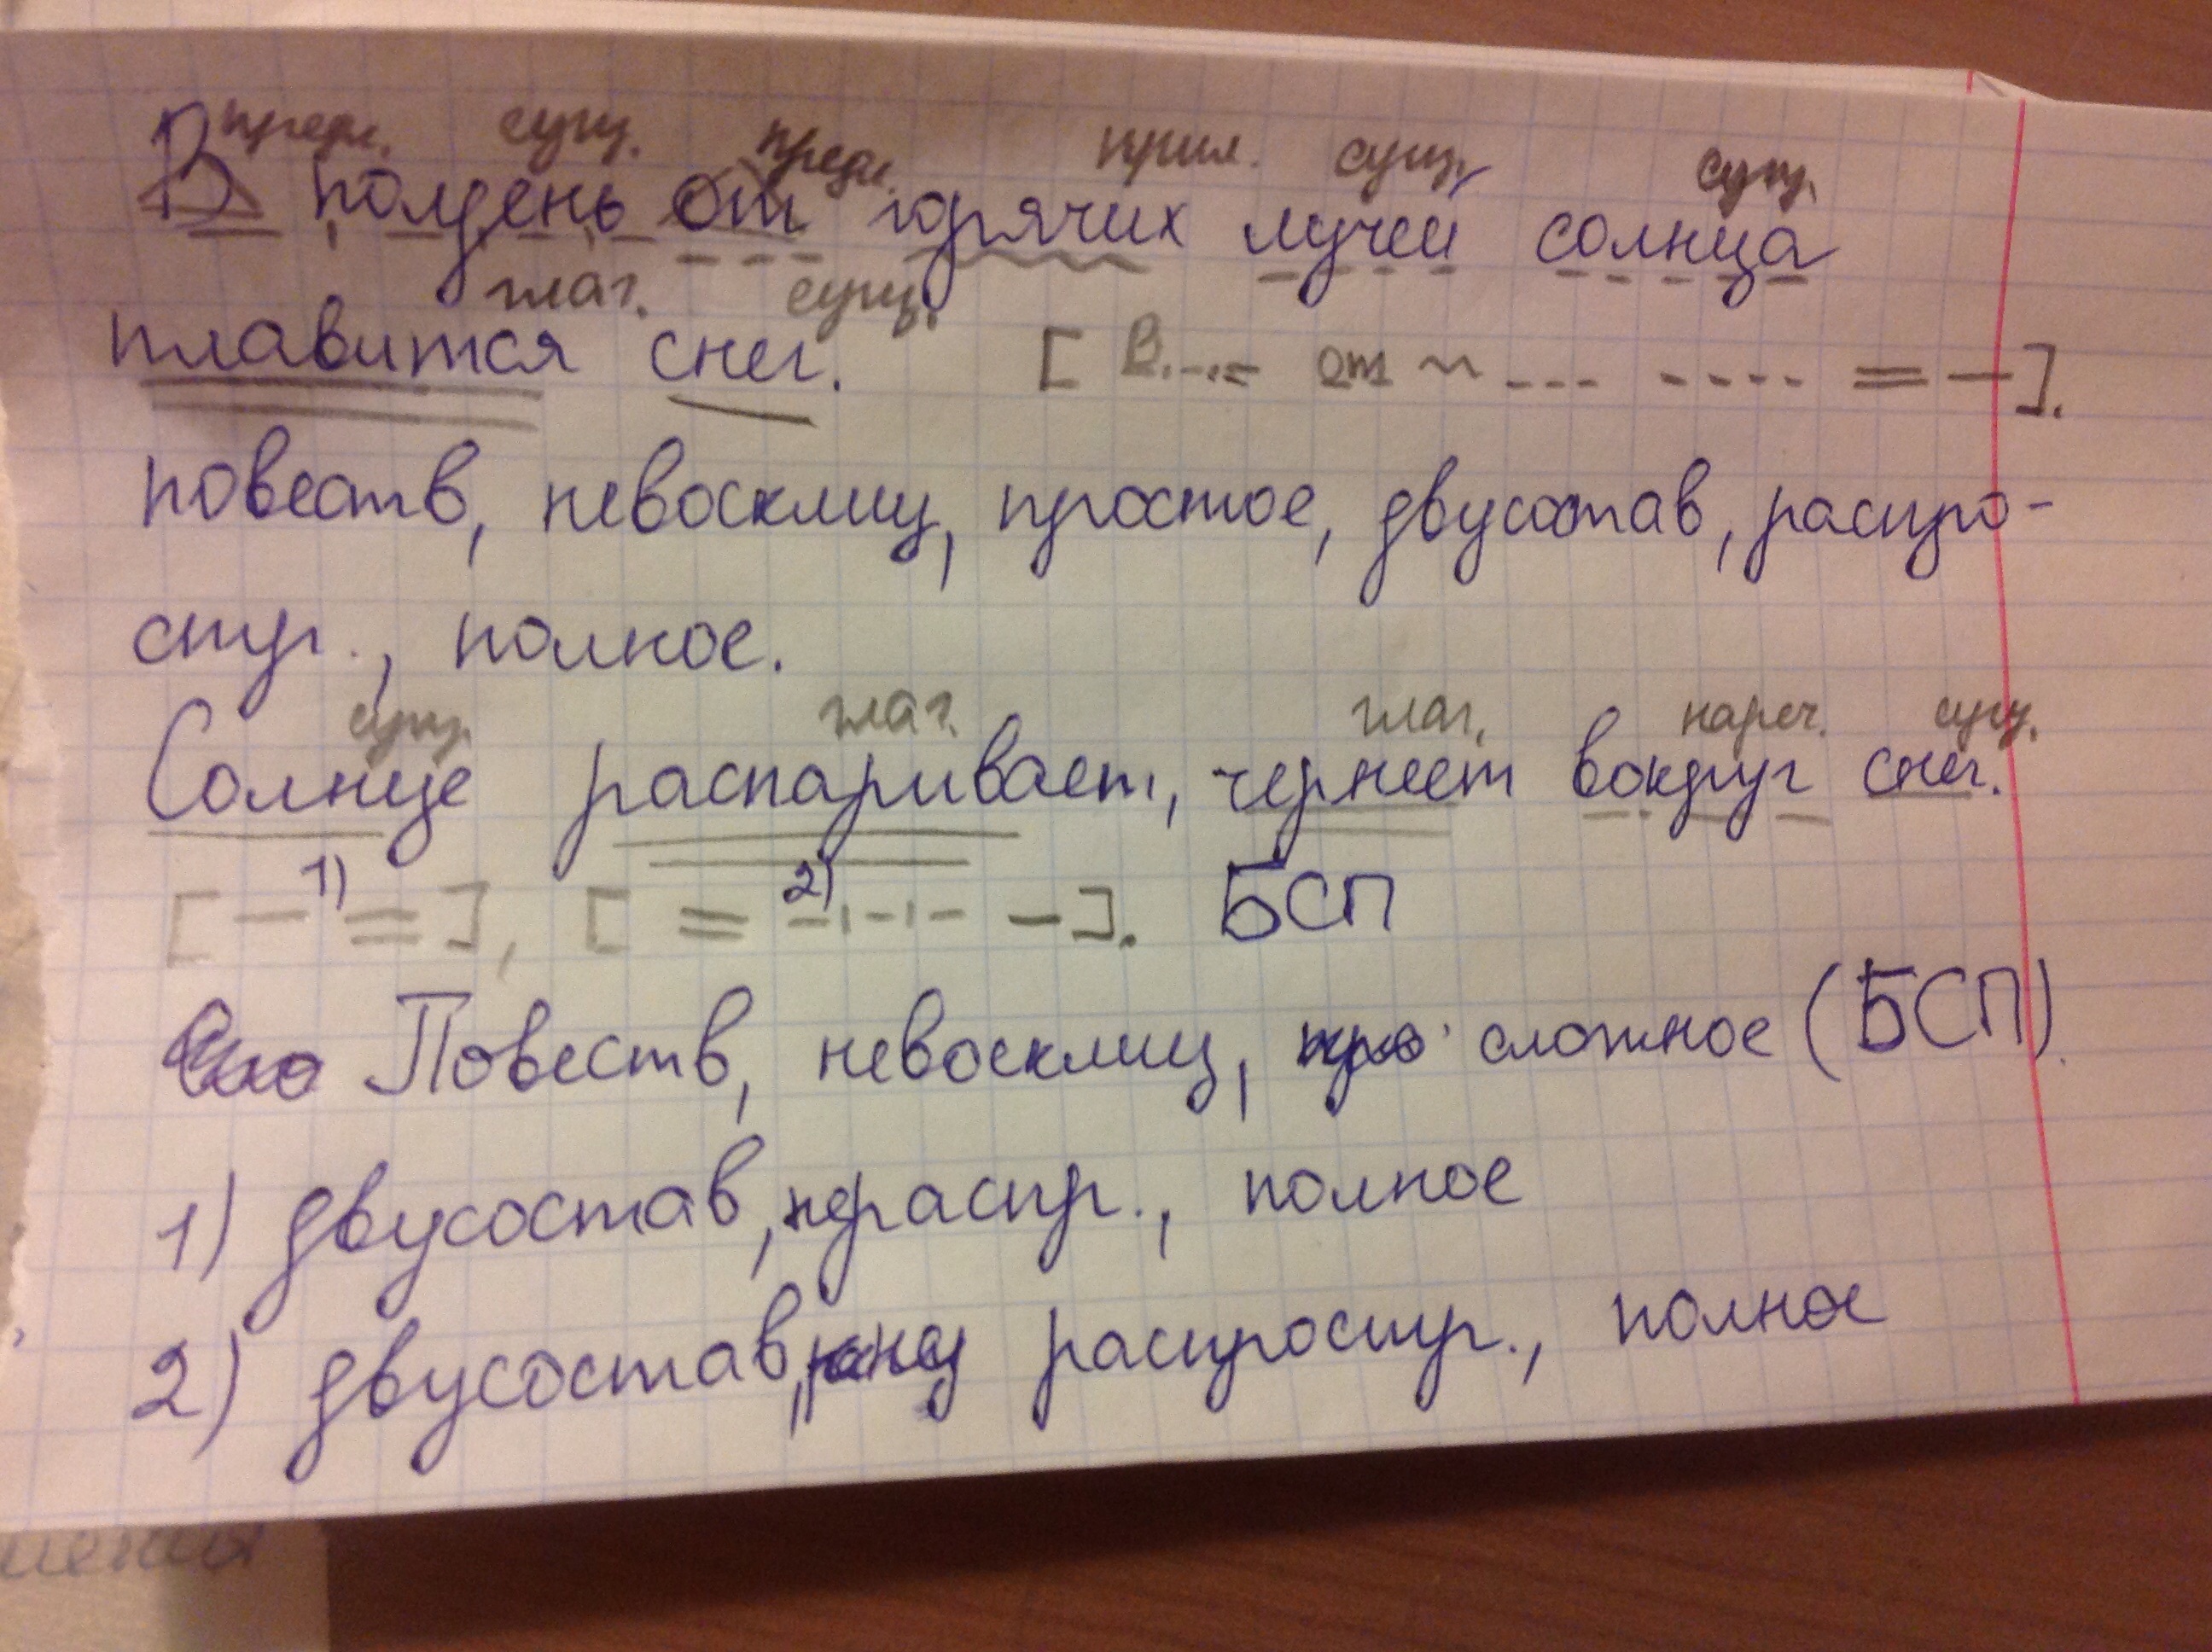 предл. сущ. предл. прил. сущ. сущ.
В полдень от горячих лучей солнца
глаг. сущ.
плавится снег. [ В от ].
повеств, невосклиц, простое, двусостав, распро-
стр., полное.
сущ. глаг. глаг. нареч. сущ.
Солнце распаривает, чернеет вокруг снег.
1) 2)
[ ], [ ]. БСП
Повеств, невосклиц, сложное (БСП).
1) двусостав, нераспр., полное
2) двусостав, распростр., полное